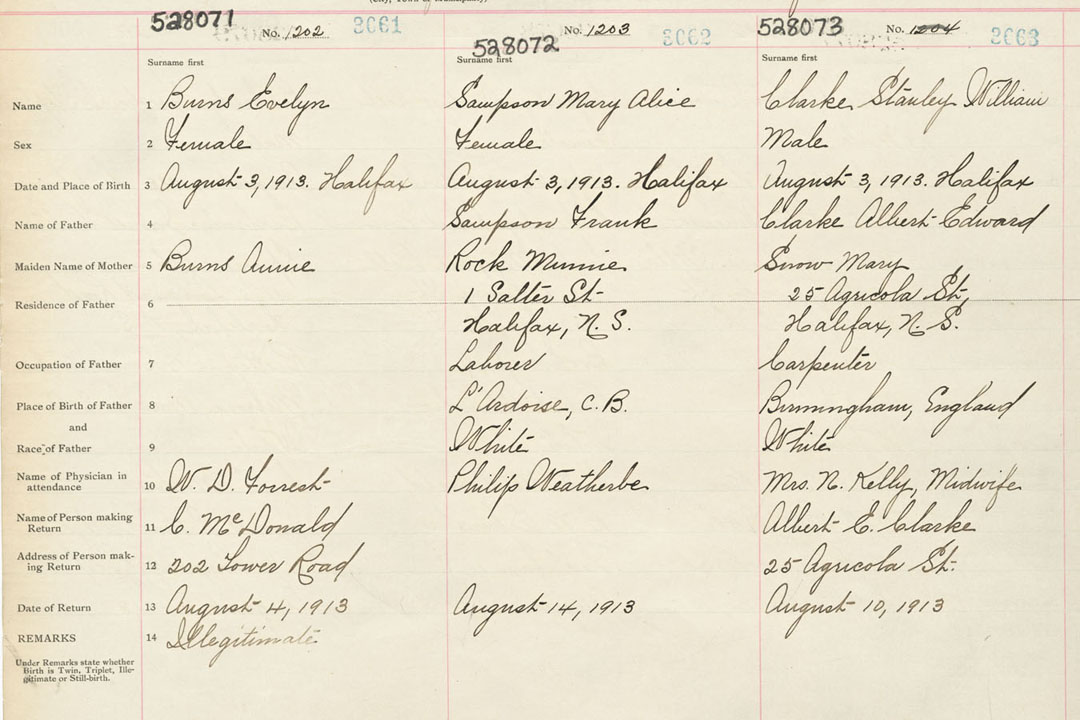 528071 No. 1202 3061
528072 No. 1203 3062
528073 No. 1204 3063
Surname first Surname first Surname first
Name 1 Burns Evelyn Sampson Mary Alice Clarke Stanley William
Sex 2 Female Female Male
Date and Place of Birth 3 August 3, 1913. Halifax August 3, 1913. Halifax August 3, 1913. Halifax
Name of Father 4 Sampson Frank Clarke Albert Edward
Maiden Name of Mother 5 Burns Annie Rock Minnie Snow Mary
Residence of Father 6 1 Salter St 25 Agricola St,
Halifax, N. S. Halifax, N. S.
Occupation of Father 7 Laborer Carpenter
Place of Birth of Father 8 L'Ardoise, C. B. Birmingham, England
and
Race of Father 9 White White
Name of Physician in
attendance 10 W. D. Forrest Philip Weatherbe Mrs. N. Kelly, Midwife
Name of Person making
Return 11 C. McDonald Albert E. Clarke
Address of Person mak-
ing Return 12 202 Tower Road 25 Agricola St.
Date of Return 13 August 4, 1913 August 14, 1913 August 10, 1913
REMARKS 14 Illegitimate
Under Remarks state whether
Birth is Twin, Triplet, Ille-
gitimate or Still-birth.